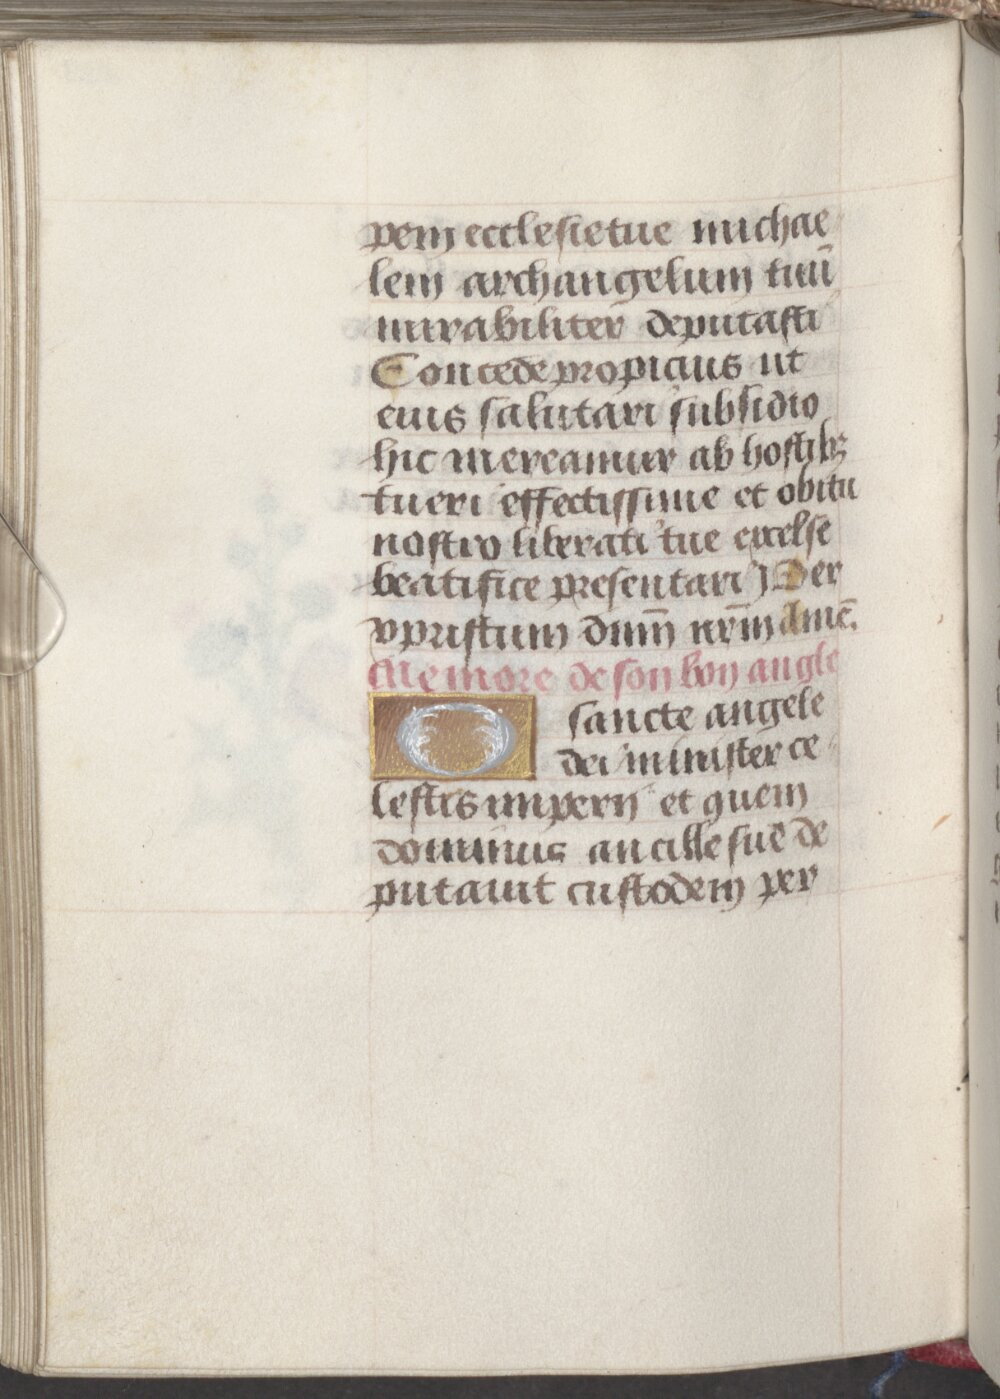 pem ecclesie tue michae
lem archangelum tuū
mirabiliter deputasti
Concede propicius ut
eius salutari subsidio
hic mereamur ab hostibꝫ
tueri effectissime et obitu
nostro liberati tue excelse
beatifice presentari Per
xpristum dnm̄ nrm̄ Amē.
Memore de son bon angle
O sancte angele
dei minister ce
lestis imperij et quem
dominus ancille sue de
putauit custodem per